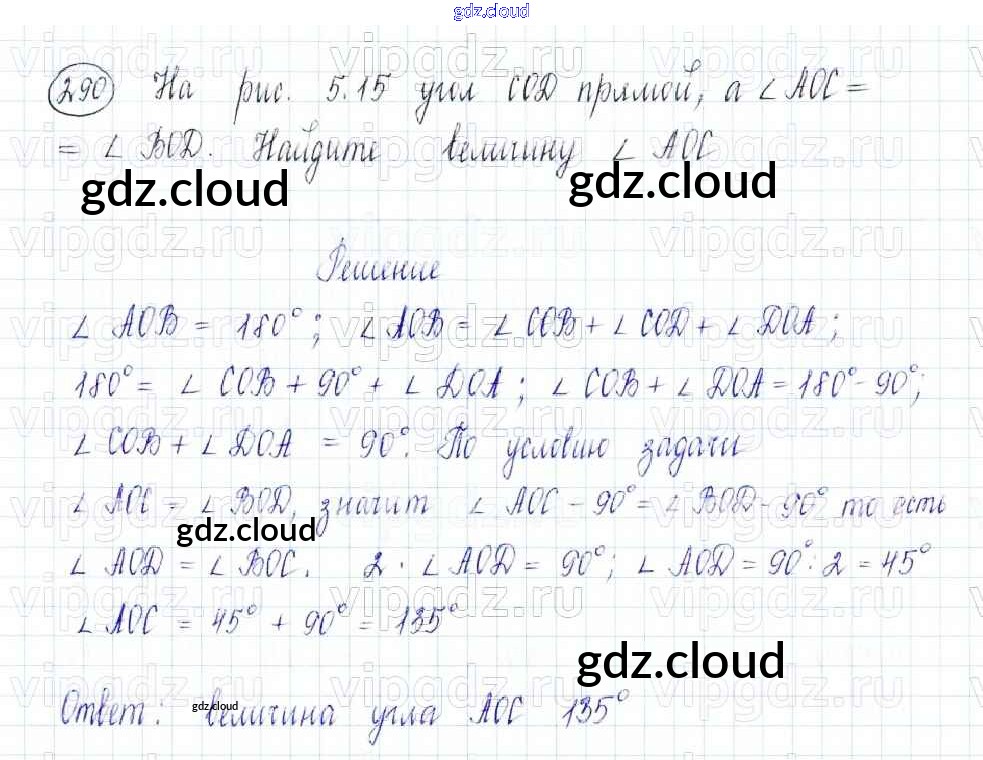 gdz.cloud
290 На рис. 5.15 угол COD прямой, а ∠ AOC =
= ∠ BOD. Найдите величину ∠ AOC
gdz.cloud gdz.cloud
Решение
∠ AOB = 180°; ∠ AOB = ∠ COB + ∠ COD + ∠ DOA;
180° = ∠ COB + 90° + ∠ DOA; ∠ COB + ∠ DOA = 180° - 90°;
∠ COB + ∠ DOA = 90°. По условию задачи
∠ AOC = ∠ BOD, значит ∠ AOC - 90° = ∠ BOD - 90° то есть
gdz.cloud
∠ AOD = ∠ BOC. 2 · ∠ AOD = 90°; ∠ AOD = 90° : 2 = 45°
∠ AOC = 45° + 90° = 135°
gdz.cloud
Ответ: величина угла AOC 135°
gdz.cloud
vipgdz.ru